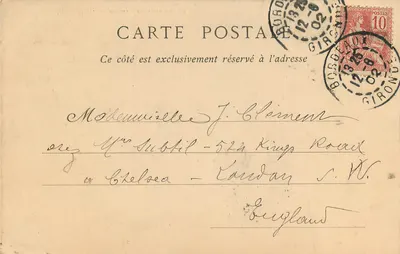 CARTE POSTALE
Ce côté est exclusivement réservé à l'adresse
BORDEAUX
13 25
12 - 8
02
GIRONDE
10
BORDEAUX
13 25
12 - 8
02
GIRONDE
Mademoiselle J. Clément
chez Mrs Subtil - 524 Kings Road
Chelsea - London S. W.
England